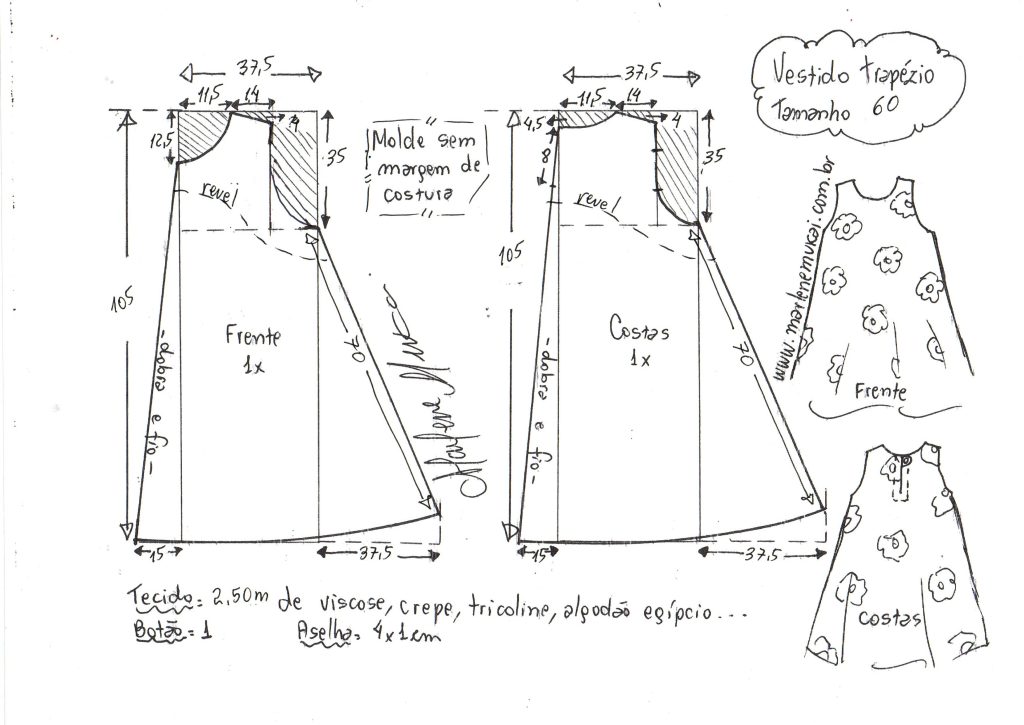 37,5
11,5
14
4
12,5
35
Molde sem
margem de
costura
revel
105
Frente
1x
- dobra e fio -
70
15
37,5
37,5
11,5
14
4,5
4
8
35
revel
105
Costas
1x
- dobra e fio -
70
15
37,5
Marlene Mukai
Vestido Trapézio
Tamanho 60
www.marlenemukai.com.br
Frente
Costas
Tecido = 2,50m de viscose, crepe, tricoline, algodão egípcio...
Botão = 1
Aselha = 4x1cm